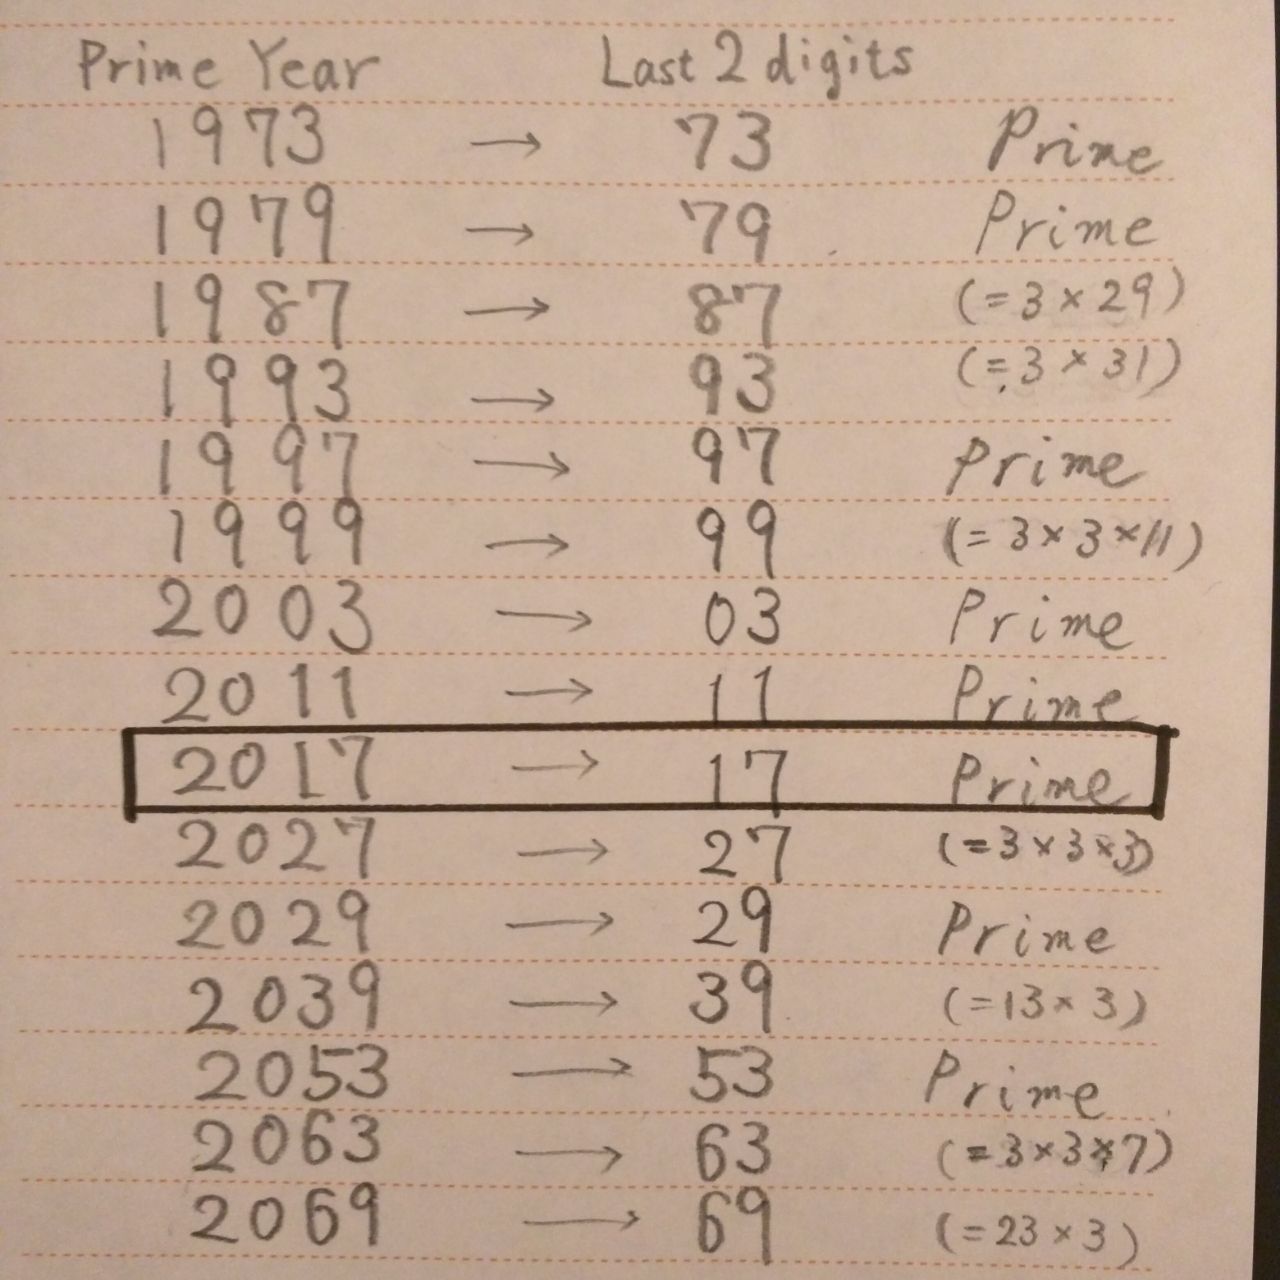 Prime Year Last 2 digits
1973 → 73 Prime
1979 → 79 Prime
1987 → 87 (=3×29)
1993 → 93 (=3×31)
1997 → 97 Prime
1999 → 99 (=3×3×11)
2003 → 03 Prime
2011 → 11 Prime
2017 → 17 Prime
2027 → 27 (=3×3×3)
2029 → 29 Prime
2039 → 39 (=13×3)
2053 → 53 Prime
2063 → 63 (=3×3×7)
2069 → 69 (=23×3)